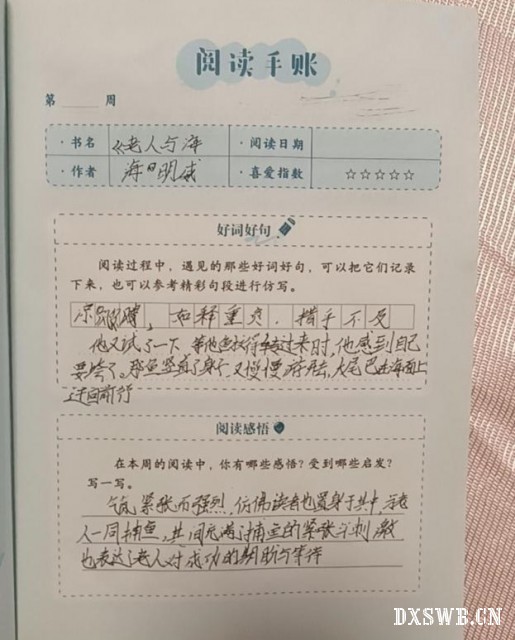 阅读手账
第 周
·书名 《老人与海 ·阅读日期
·作者 海明威 ·喜爱指数 ☆☆☆☆☆
好词好句
阅读过程中，遇见的那些好词好句，可以把它们记录
下来，也可以参考精彩句段进行仿写。
如释重负. 措手不及
他又试了一下 等他把鱼转过来时,他感到自己
要垮了。那鱼竖直了身子 又慢慢 大尾巴在海面上
阅读感悟
在本周的阅读中，你有哪些感悟？受到哪些启发？
写一写。
气氛紧张而强烈,仿佛读者也置身于其中,与老
人一同捕鱼,其间充满了捕鱼的紧张与刺激
也表达了老人对成功的期盼与
DXSWB.CN